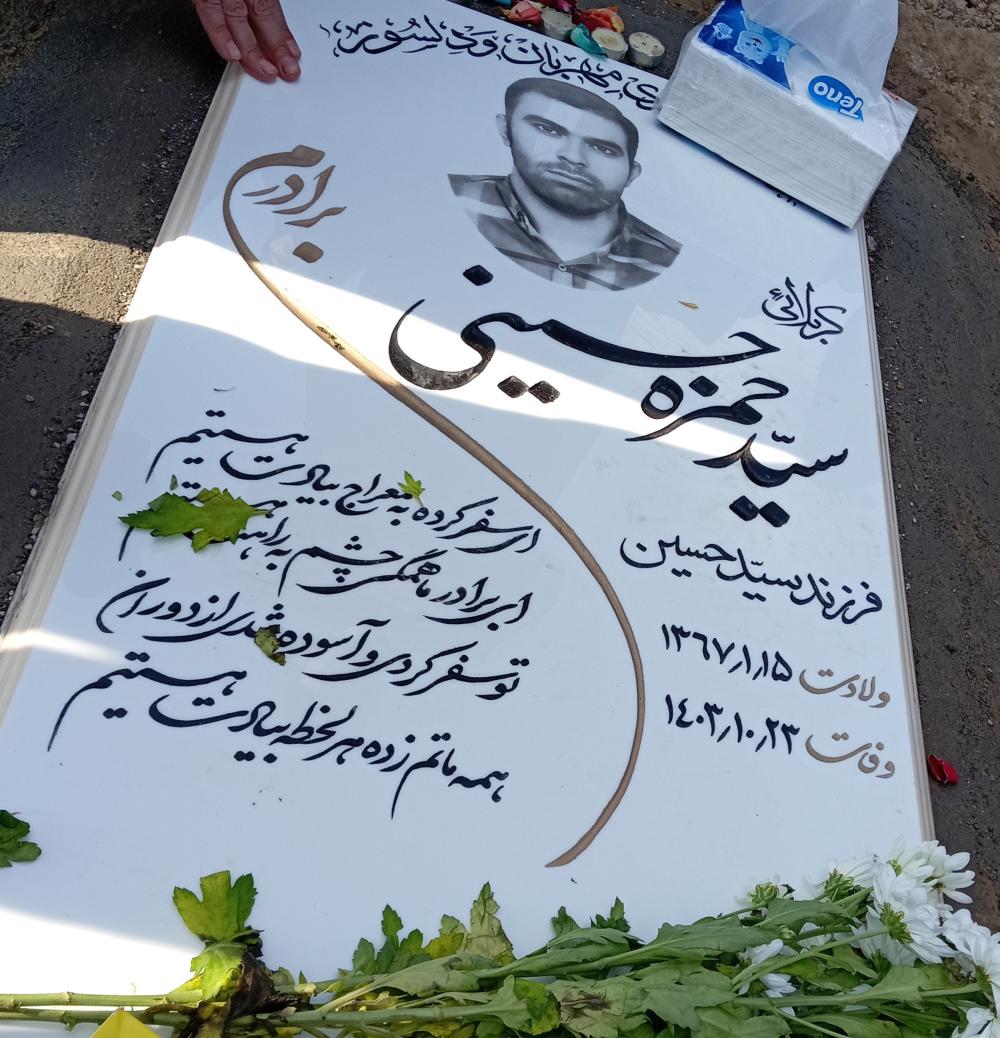 ی مهربان و دلسوز
Teno
برادرم
کربلائی
سیّد حمزه حسینی
فرزند سیّد حسین
ولادت ۱۳۶۷/۱/۱۵
وفات ۱۴۰۳/۱۰/۲۳
ای سفر کرده به معراج بیادت هستیم
ای برادر ما همگی چشم به راهت
تو سفر کردی و آسوده شدی از دوران
همه ماتم زده هر لحظه بیادت هستیم